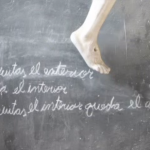 quitas el exterior
a el interior
quitas el interior queda el a